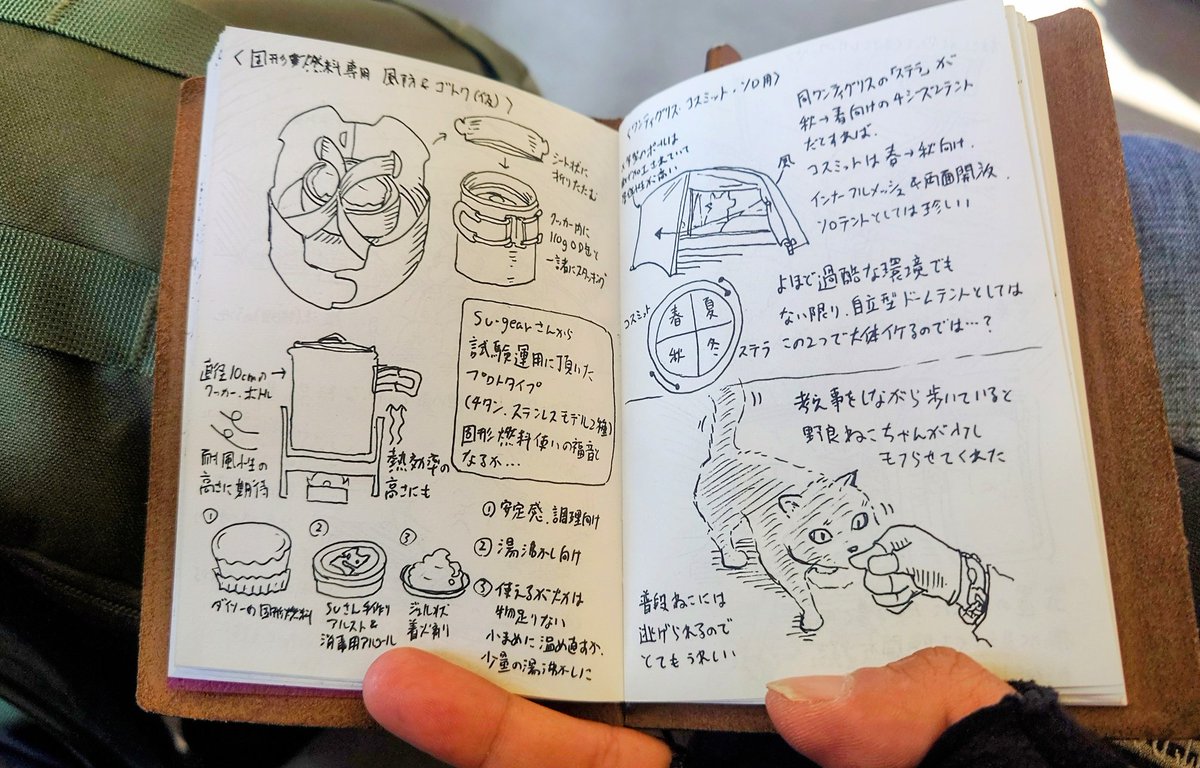 〈固形燃料専用 風防&ゴトク(仮)〉
シート状に
折りたたむ
クッカー内に
110g OD缶と
一緒にスタッキング
直径10cmの
クッカー、ボトル
耐風性の
高さに期待
熱効率の
高さにも
Su-gearさんから
試験運用に頂いた
プロトタイプ
(チタン、ステンレスモデル2種)
固形燃料使いの福音と
なるか…
①
ダイソーの固形燃料
②
Suさん手作り
アルスト&
消毒用アルコール
③
ジェル状
着火剤
① 安定感、調理向け
② 湯沸かし向け
③ 使えるが火力は
物足りない
小まめに温め直すか、
少量の湯沸かしに
〈ワンティグリス・コスミット・ソロ用〉
同ワンティグリスの「ステラ」が
秋→春向けの4シーズンテント
だとすれば、
コスミットは春→秋向け。
インナーフルメッシュ&両面開放、
ソロテントとしては珍しい
風
コスミット
春 夏
秋 冬
ステラ
よほど過酷な環境でも
ない限り、自立型ドームテントとしては
この2つで大体イケるのでは…?
考え事をしながら歩いていると
野良ねこちゃんが少し
モフらせてくれた
普段ねこには
逃げられるので
とてもうれしい